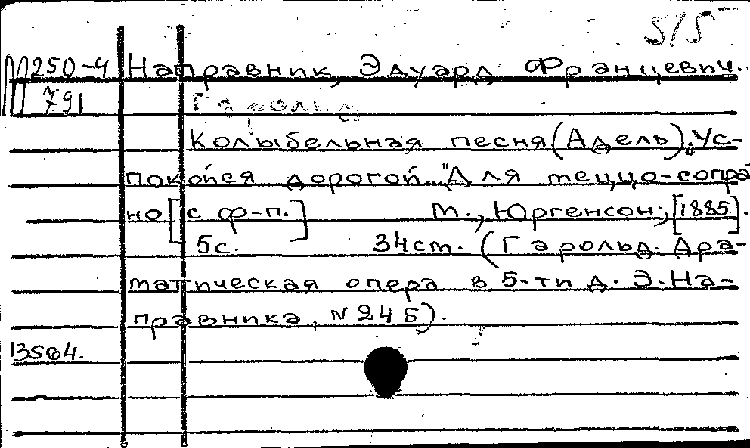 515
П250-4 Направник, Эдуард Францевич.
791 Гарольд
Колыбельная песня (Адель) "Ус-
покойся дорогой..." Для меццо-сопра
но [с ф-п.] М., Юргенсон, [1885].
5с. 34см. (Гарольд. Дра-
матическая опера в 5-ти д. Э. На-
правника, №24Б).
13504.